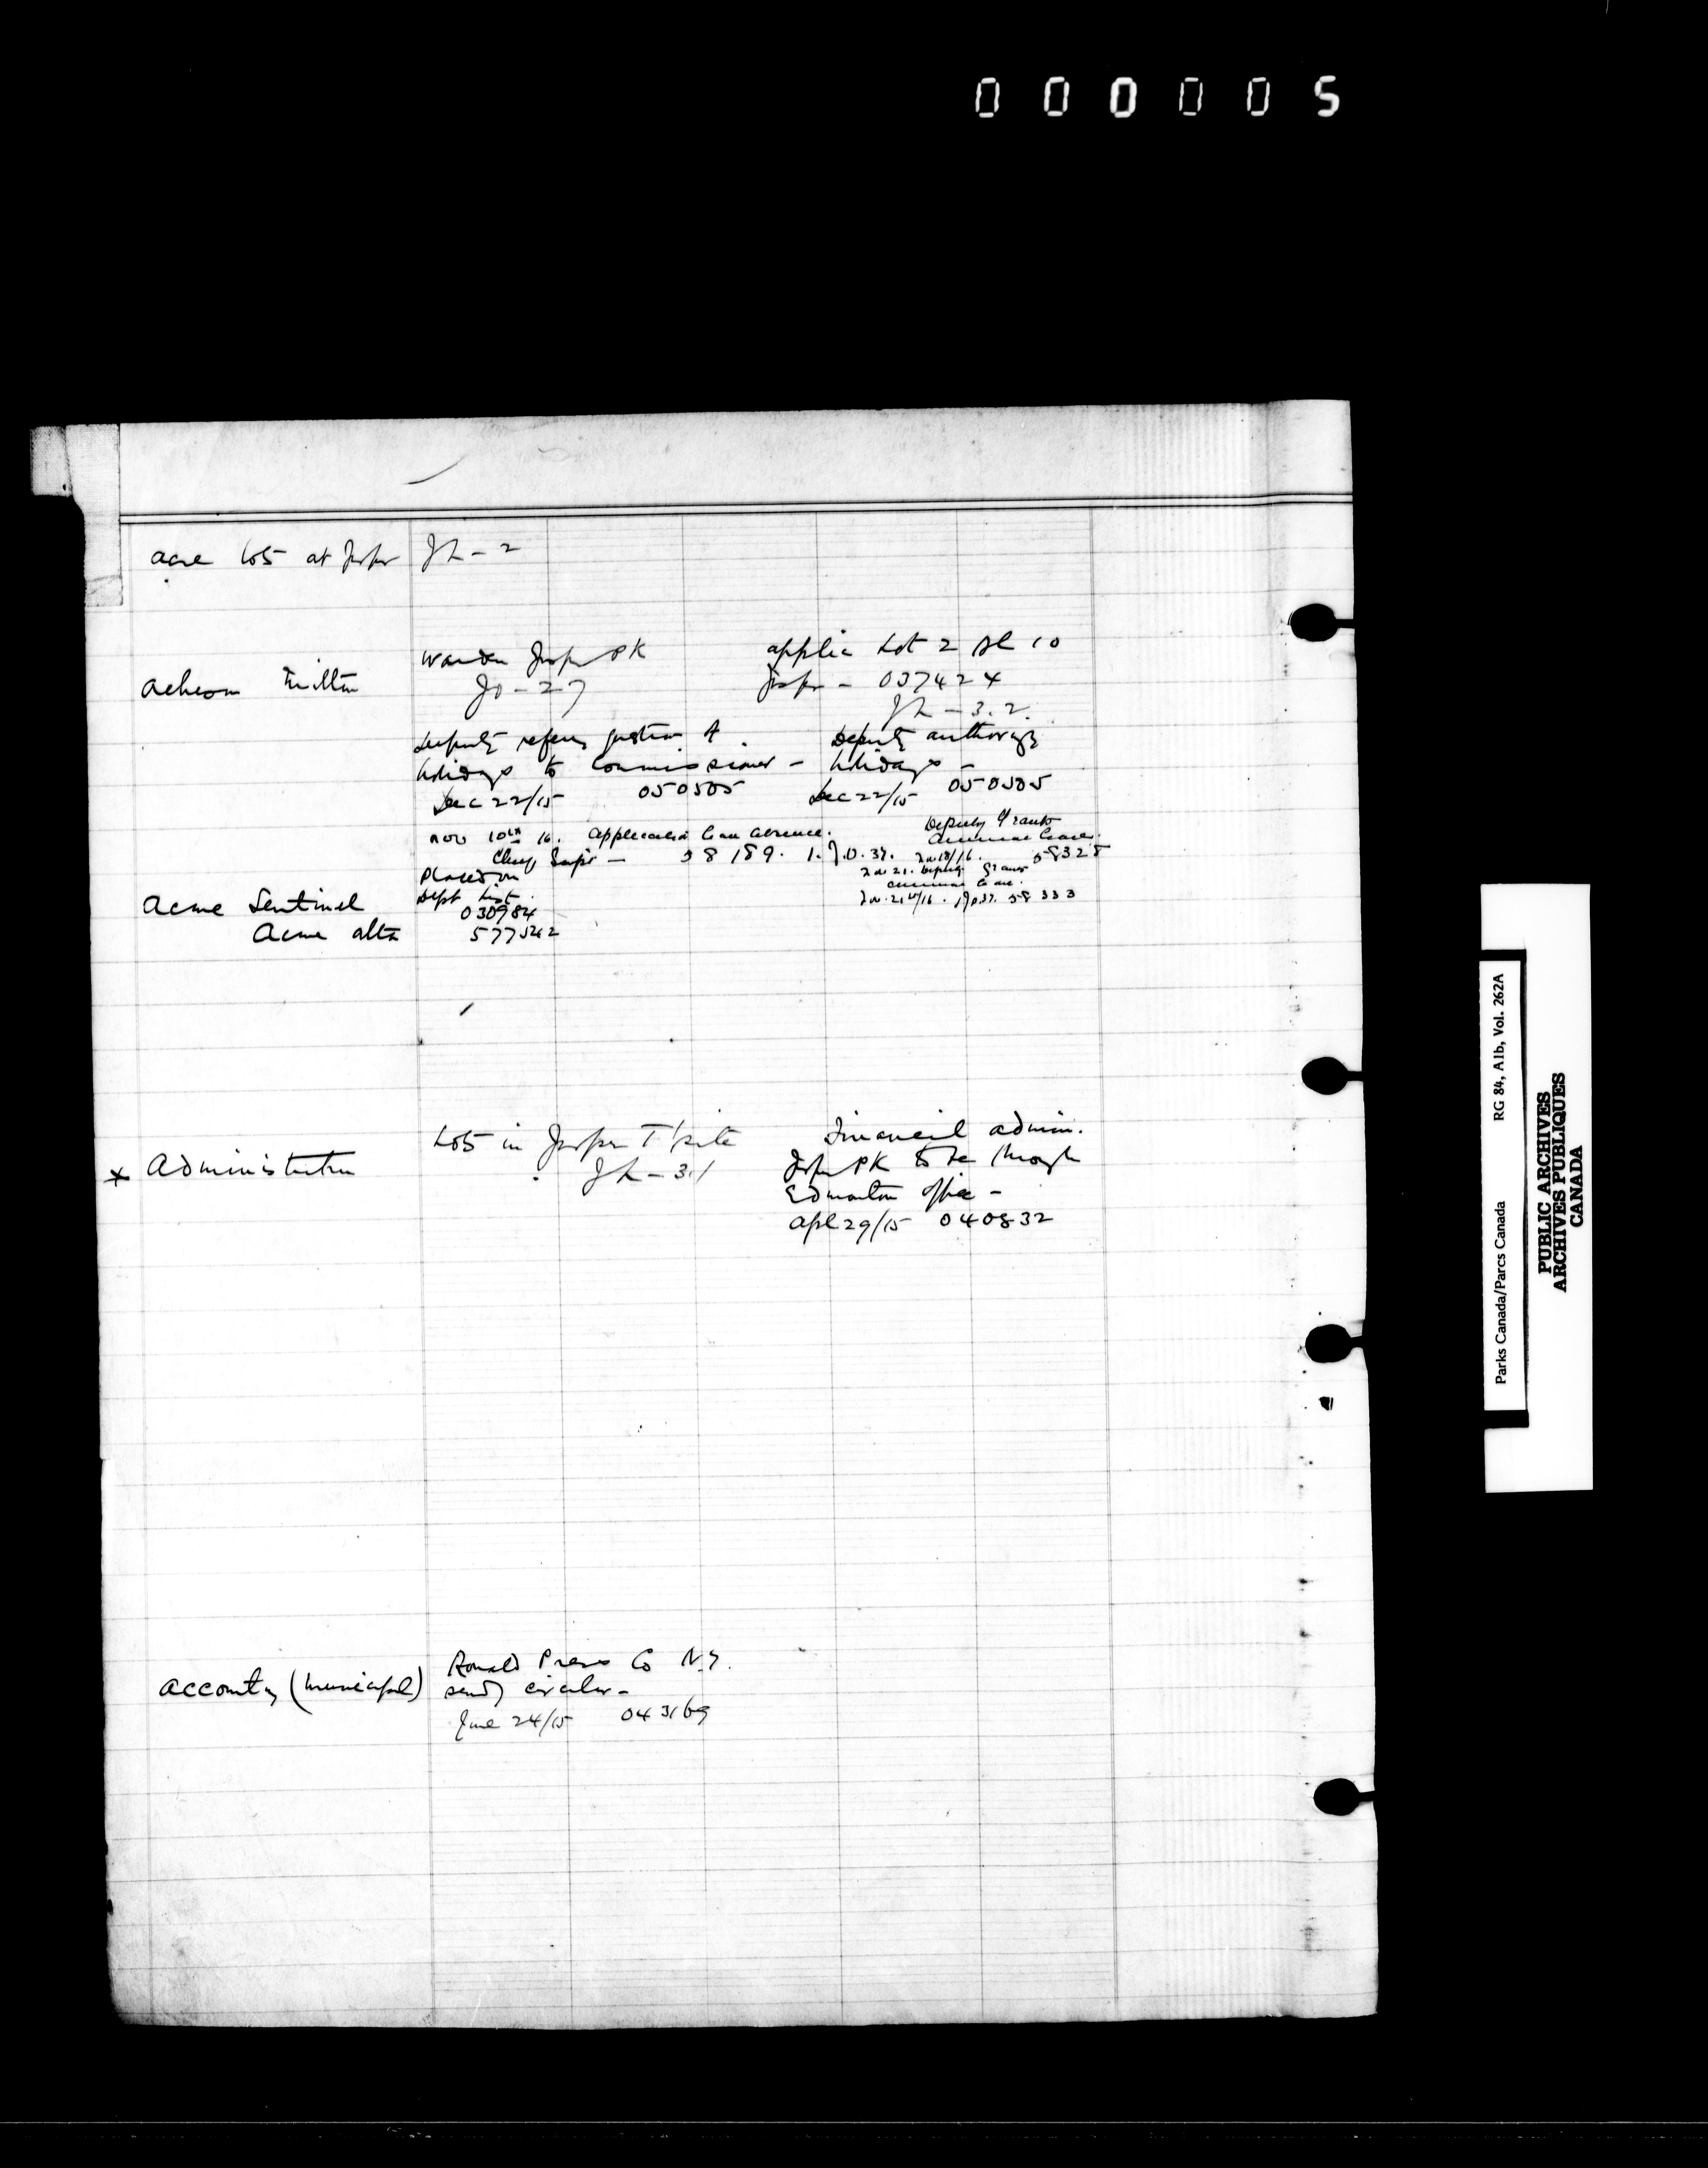 000005
acre lots at Jasper JL-2
Acheson Milton
Warden Jasper PK
Jo-27
applic Lot 2 Bl 10
Jasper - 037424
JL-3.2.
Deputy refers question of
holidays to Commissioner -
Dec 22/15 050505
Deputy authorizes
holidays -
Dec 22/15 050505
Nov 10th 16. Application leave absence.
Supt - 58189. 1.J.O.37.
Deputy grants
annual leave.
Nov 18/16. 58328
Nov 21. Deputy grants
leave.
Nov. 21st/16. J.O.37. 58333
Acme Sentinel
Acme Alta
Placed on
Dept List.
030984
577542
x Administration
Lots in Jasper T'site
JL-3.1
Financial admin.
Jasper PK to be through
Edmonton office -
Apl 29/15 040832
Accounting (Municipal)
Ronald Press Co N.Y.
sends circular -
June 24/15 043169
Parks Canada/Parcs Canada RG 84, A1b, Vol. 262A
PUBLIC ARCHIVES
ARCHIVES PUBLIQUES
CANADA